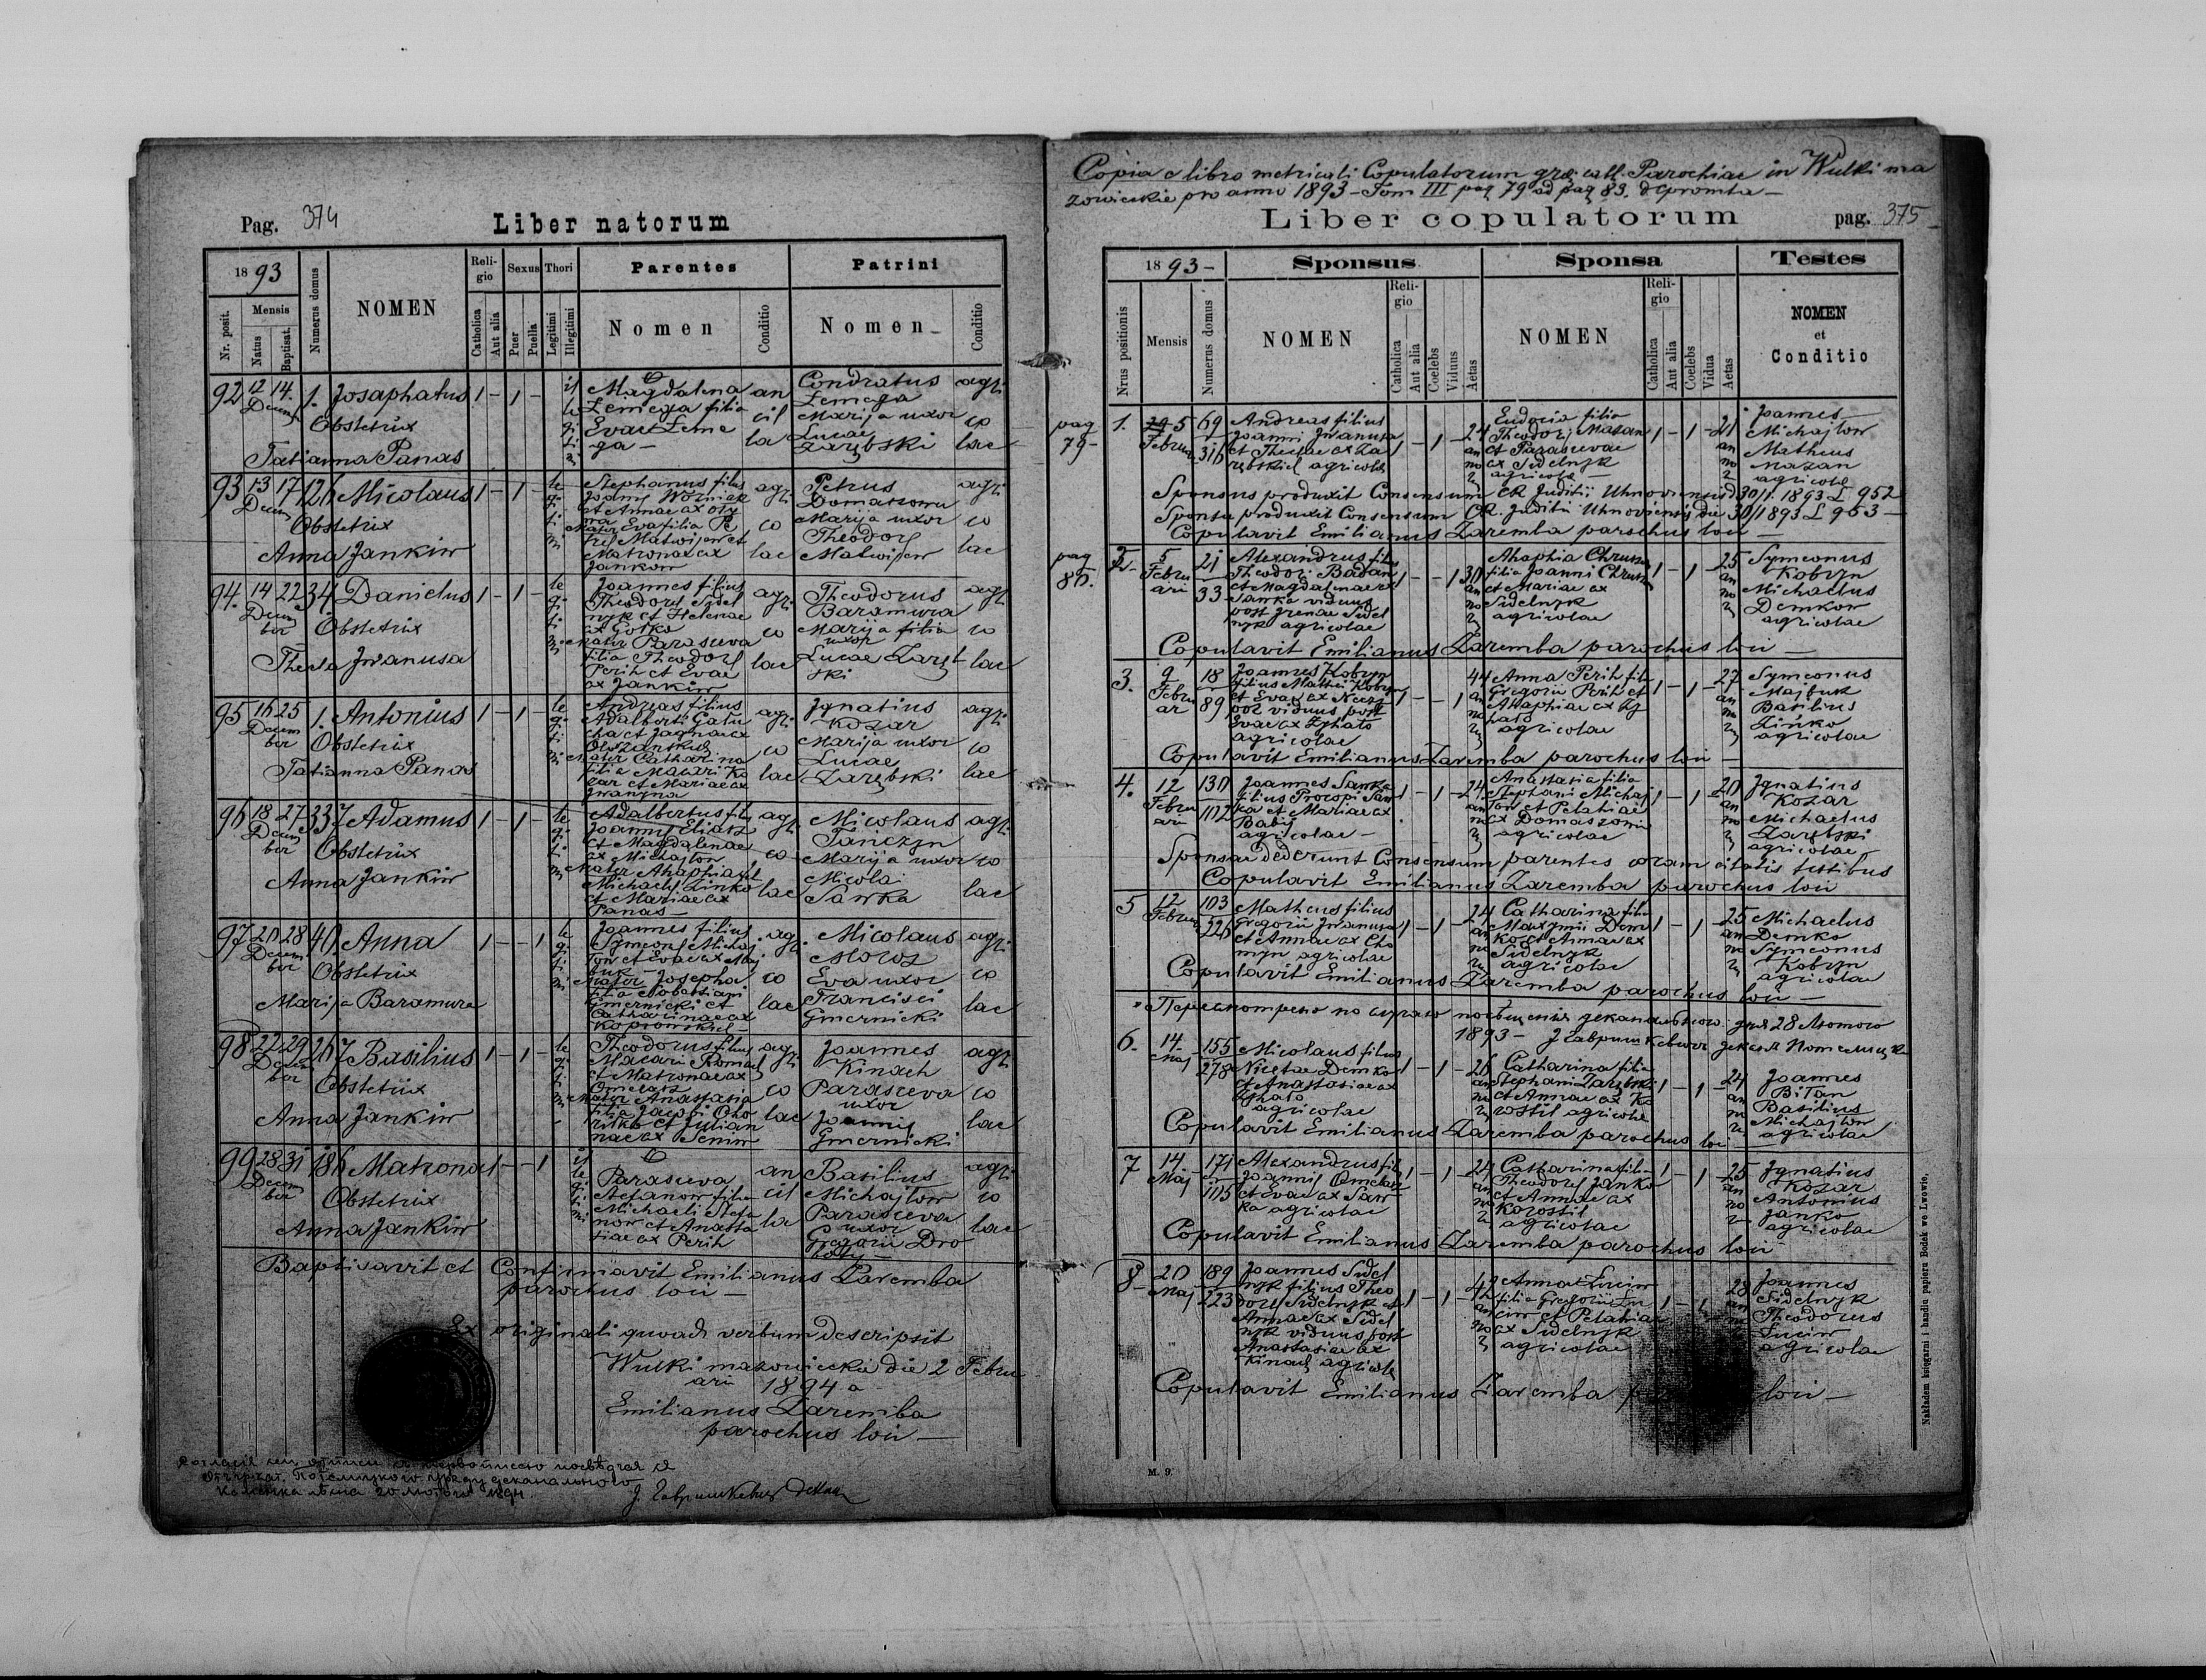 Pag. 374
Liber natorum
18 93
Nr. posit.
Mensis
Natus
Baptisat.
Numerus domus
NOMEN
Religio
Catholica
Aut alia
Sexus
Puer
Puella
Thori
Legitimi
Illegitimi
Parentes
Nomen
Conditio
Patrini
Nomen
Conditio
92 12 14. 1. Josaphatus 1 - 1 -
Decem
Obstetrix
Tatianna Panas
Magdalena
Zemega filia
Evae Zeme
ga -
an
cil
la
Condratus
Zemega
Marija uxor
Lucae
Zarębski
agri
co
lae
93 13 17 126 Nicolaus 1 - 1 -
Decem
Obstetrix
Anna Jankiw
Stephanus filius
Joannis Woźniak
et Annae ex
Mater Eva filia Pe
tri Matwijew et
Matronae ex
Jankow
agri
co
lae
Petrus
Marija uxor
Theodori
Matwijew
agri
co
lae
94. 14 22 34 Danielus 1 - 1 -
Decem
ber
Obstetrix
Thecla Iwanusa
Joannes filius
Theodori Sydel
nyk et Helenae
ex Gotko
Mater Parasceva
filia Theodori
Perih et Evae
ex Jankiw
agri
co
lae
Theodorus
Baramura
Marija filia
uxor
Lucae Zaręb
ski
agri
co
lae
95 16 25 1. Antonius 1 - 1 -
Decem
ber
Obstetrix
Tatianna Panas
Andreas filius
Adalberti
Mater Catharina
filia Macarii Ko
zar et Mariae ex
agri
co
lae
Ignatius
Kozar
Marija uxor
Lucae
Zarębski
agri
co
lae
96 18 27 337 Adamus 1 - 1 -
Decem
ber
Obstetrix
Anna Jankiw
Adalbertus fil
Joannis Eliasz
et Magdalenae
ex Michajlow
Mater Ahaphia fil
Michaeli Zinko
et Mariae ex
Panas -
agri
co
lae
Nicolaus
Tanczyn
Marija uxor
Nicolai
Sawka
agri
co
lae
97 20 28 40. Anna 1 - - 1
Decem
ber
Obstetrix
Marija Baramura
Joannes filius
Symeoni Michaj
low et Evae ex Maj
buk -
Mater Josepha
filia Sebastiani
Gmernicki et
Catharinae ex
agri
co
lae
Nicolaus
Moroz
Eva uxor
Francisci
Gmernicki
agri
co
lae
98 22 29 267 Basilius 1 - 1 -
Decem
ber
Obstetrix
Anna Jankiw
Theodorus filius
Macarii
et Matronae ex
Mater Anastasia
filia Jacobi
et Julian
nae ex Seniw
agri
co
lae
Joannes
Kinach
Parasceva
uxor
Joannis
Gmernicki
agri
co
lae
99 28 31 186 Matrona 1 - - 1
Decem
ber
Obstetrix
Anna Jankiw
Parasceva
Stefanow filia
Michaeli Stefa
now et Anasta
siae ex Perih
an
cil
la
Basilius
Michajlow
Parasceva
uxor
Gregorii Dro
agri
co
lae
Baptisavit et Confirmavit Emilianus Zaremba
parochus loci -
Ex originali quoad verbum descripsit
Wulki mazowieckie die 2 Febru
arii 1894 a
Emilianus Zaremba
parochus loci -
Copia e libro metricali Copulatorum gr. cath. Parochiae in Wulki ma
zowieckie pro anno 1893 - Tom III pag 79 ad pag 83. deprompta -
Liber copulatorum
pag. 375
18 93 -
Nrus positionis
Mensis
Numerus domus
Sponsus
NOMEN
Religio
Catholica
Aut alia
Coelebs
Viduus
Aetas
Sponsa
NOMEN
Religio
Catholica
Aut alia
Coelebs
Vidua
Aetas
Testes
NOMEN
et
Conditio
pag
79 -
1. 5 69
Februa 316
Andreas filius
Joanni Iwanusa
et Theclae ex Za
rębskich agricolae
1 - 1 - 24
Eudocia filia
Theodori Mazan
et Parascevae
ex Sidelnyk
agricolae
1 - 1 - 21
Joannes
Michajlow
Matheus
Mazan
agricolae
Sponsus produxit Consensum CR Juditii Uhnoviensis d 30/1. 1893 L 952
Sponsa produxit Consensum CR. Juditii Uhnoviensis die 30/1893 L 953 -
Copulavit Emilianus Zaremba parochus loci -
pag
80.
2 - 5 21
Febru 33
arii
Alexandrus filius
Theodori Badan
et Magdalenae ex
Sanka viduus
post Irenae Sidel
nyk agricolae
1 - - 1 30
Ahaphia
filia Joanni
et Mariae ex
Sidelnyk
agricolae
1 - 1 - 25
Symeonus
Kobryn
Michaelus
Demkow
agricolae
Copulavit Emilianus Zaremba parochus loci -
3. 9 18
Febru 89
ar
Joannes Kobryn
filius Matthei Kobryn
et Evae ex
viduus post
Evae ex Zyhalo
agricolae
1 - - 1 44
Anna Perih filia
Gregorii Perih et
Ahaphiae ex Zy
halo
agricolae
1 - 1 - 27
Symeonus
Majbuk
Basilius
Zinko
agricolae
Copulavit Emilianus Zaremba parochus loci -
4. 12 130
Febru 102
arii
Joannes Sanka
filius Procopi San
ka et Mariae ex
Babij
agricolae -
1 - 1 - 24
Anastasia filia
Stephani Michaj
low et Pelahiae
ex Domaszowiec
agricolae
1 - 1 - 20
Ignatius
Kozar
Michaelus
Zarębski
agricolae -
Sponsae dederunt Consensum parentes coram citatis testibus
Copulavit Emilianus Zaremba parochus loci
5 12 103
Februa 226
Matheus filius
Gregorii Iwanusa
et Annae ex Cho
myn agricolae
1 - 1 - 24
Catharina filia
Maxymi Dem
ko et Annae ex
Sidelnyk
agricolae
1 - 1 - 25
Michaelus
Demko
Symeonus
Kobryn
agricolae
Copulavit Emilianus Zaremba parochus loci -
6. 14 155
Maj 278
Nicolaus filius
Nicetae Demko
et Anastasiae ex
Zyhalo
agricolae
1 - 1 - 26
Catharina filia
Stephani Zarębski
et Annae ex Ko
rostil agricolae
1 - 1 - 24
Joannes
Bilan
Basilius
Michajlow
agricolae
Copulavit Emilianus Zaremba parochus loci
7 14 171
Maj 105
Alexandrus fil
Joannis Omelan
et Evae ex Saw
ka agricolae
1 - 1 - 24
Catharina filia
Theodori Janko
et Annae ex
Korostil
agricolae
1 - 1 - 25
Ignatius
Kozar
Antonius
Janko
agricolae
Copulavit Emilianus Zaremba parochus loci
8 - 20 189
Maj 223
Joannes Sidel
nyk filius Theo
dori Sidelnyk et
Annae ex Sidel
nyk viduus post
Anastasiae ex
Kinach agricolae
1 - 1 - 42
Anna Luciw
filia Gregorii Lu
ciw et Pelahiae
ex Sidelnyk
agricolae
1 - 1 28
Joannes
Sidelnyk
Theodorus
Luciw
agricolae
Copulavit Emilianus Zaremba loci -
M. 9.
Nakładem księgarni i handlu papieru Bodek we Lwowie.